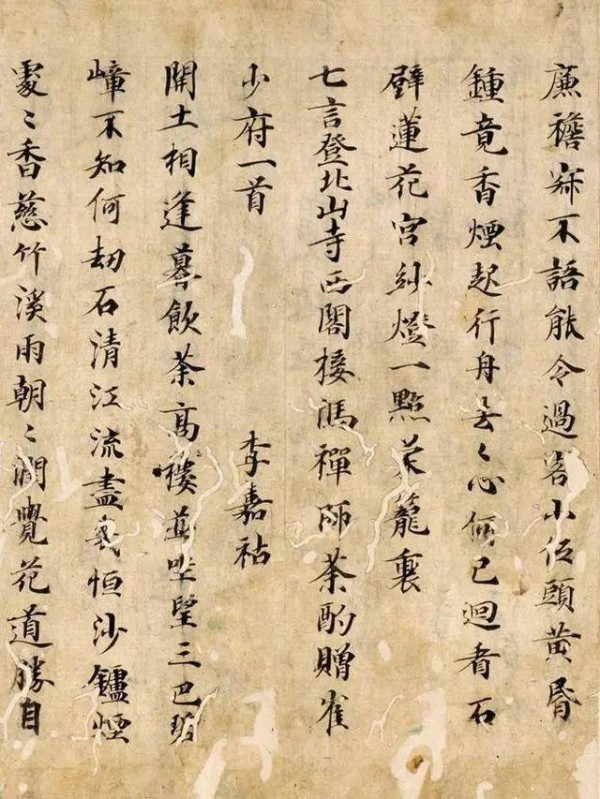 廉襜寂不語能令過客小低頭黃昏
鍾竟香煙起行舟去々心何已迴看石
壁蓮花宮紗燈一點籠裏
七言登北山寺西閣接馮禪師茶酌贈崔
少府一首 李嘉祐
開士相逢暮飲茶高樓並坐望三巴碧
嶂不知何劫石清江流盡幾恒沙鑪煙
處〻香慈竹溪雨朝〻潤覺花道勝自